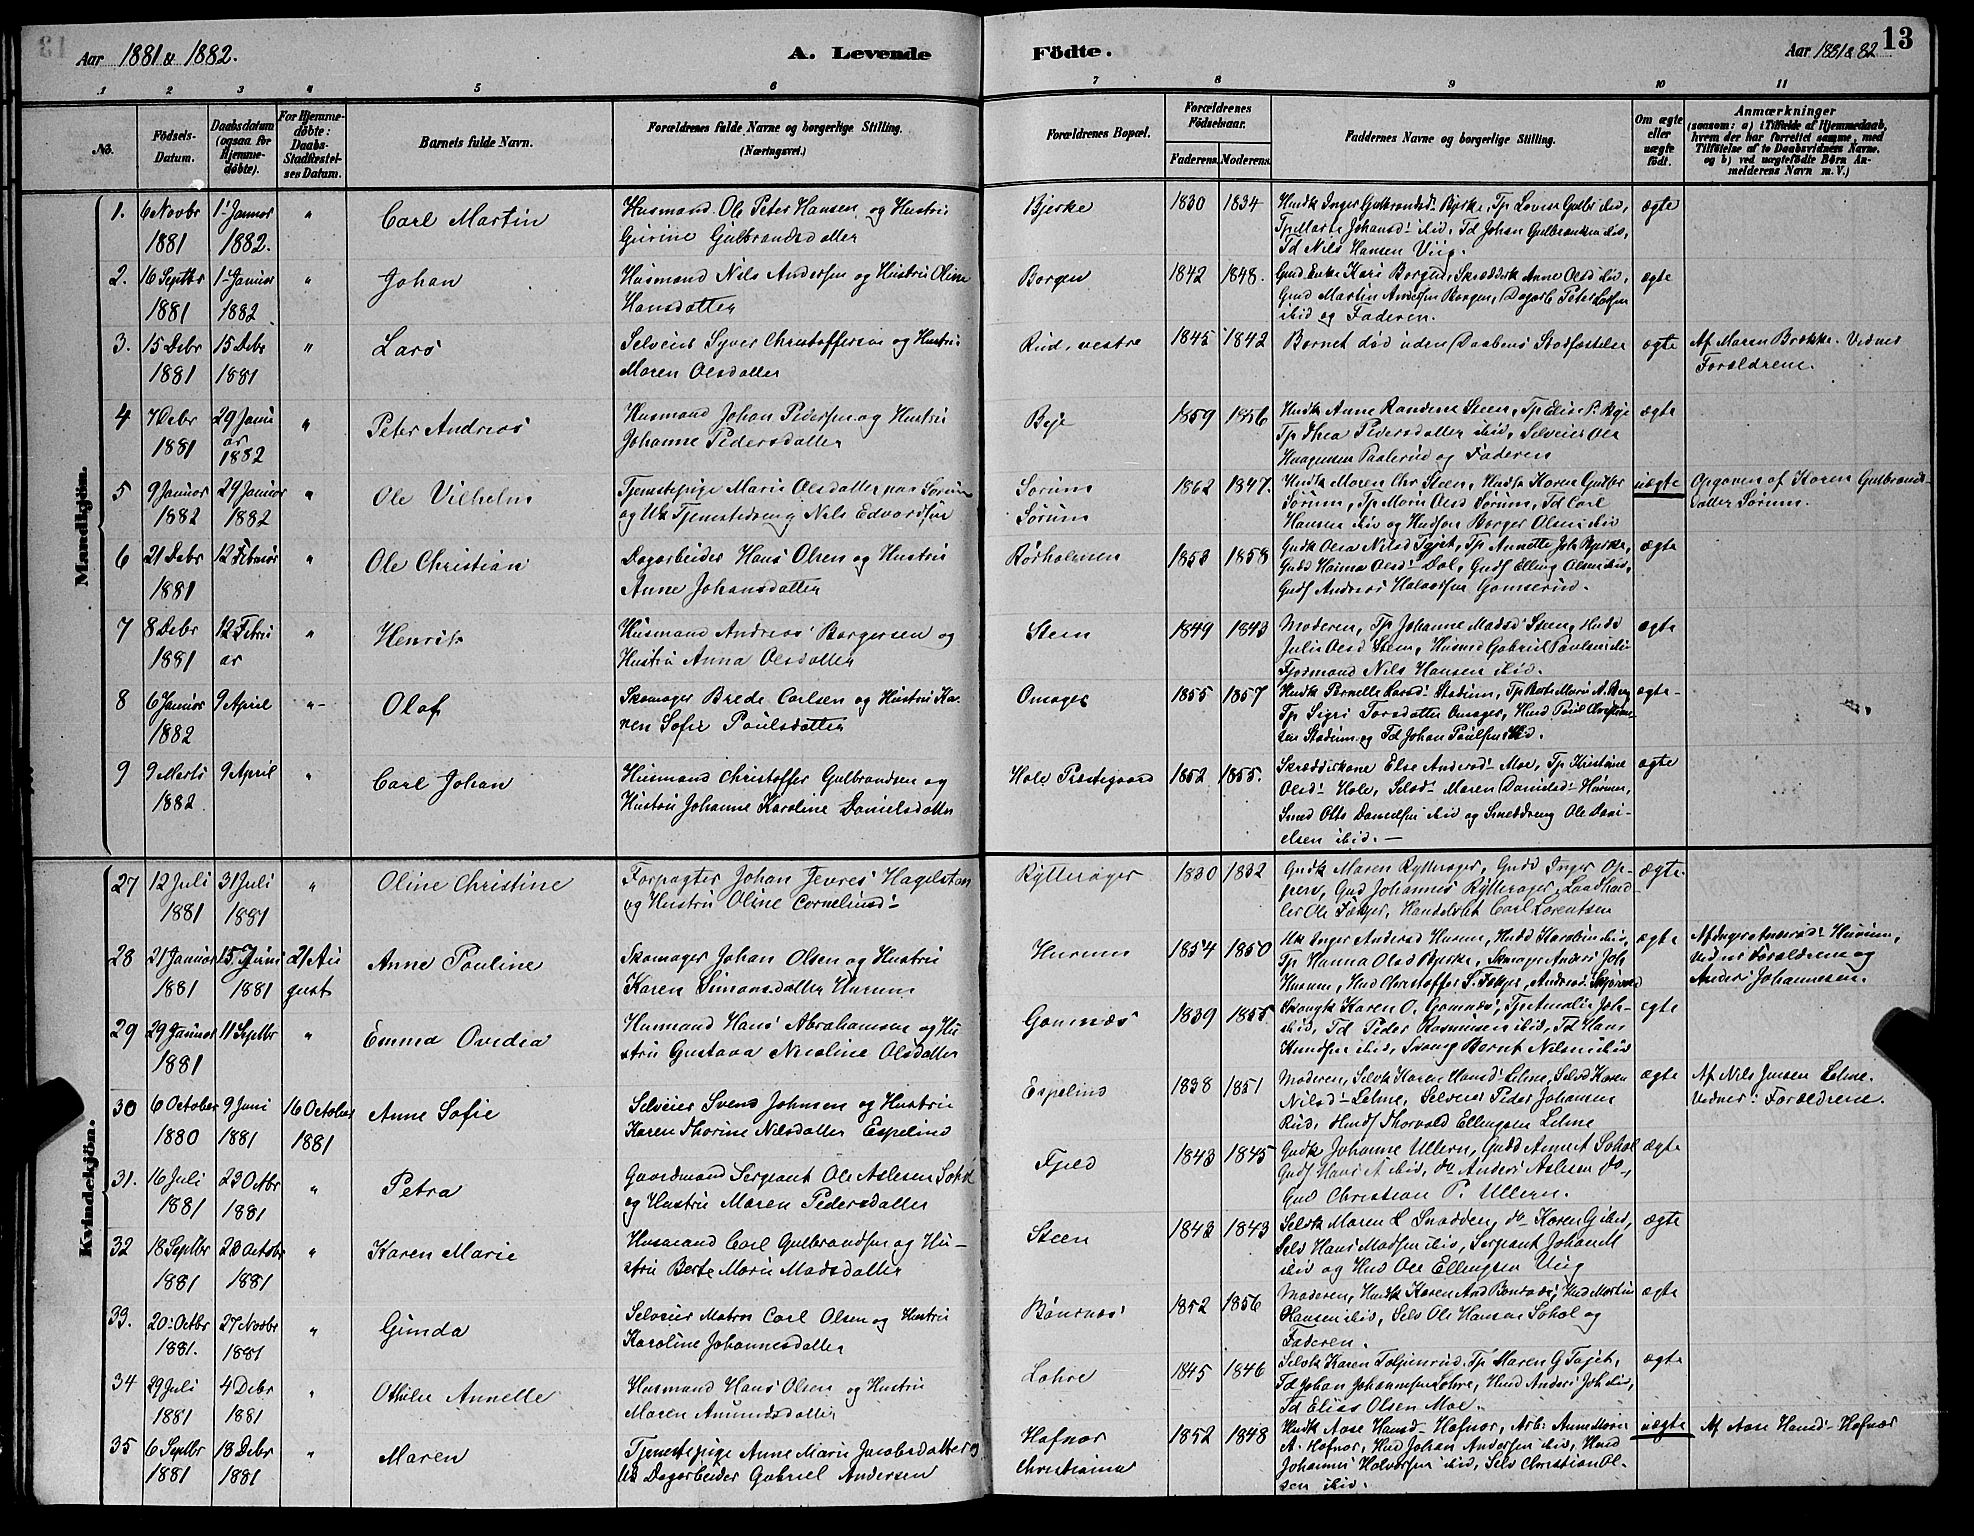 Aar 1881 & 1882.
A. Levende
Födte.
Aar 1881 & 82
13
1 2 3 4 5 6 7 8 9 10 11
No.
Födsels-Datum.
Daabsdatum (ogsaa for Hjemme-døbte).
For Hjemme-døbte: Daabs-Stadfæstel-ses Datum.
Barnets fulde Navn.
Forældrenes fulde Navne og borgerlige Stilling. (Næringsvei.)
Forældrenes Bopæl.
Forældrenes Födselsaar.
Faderens. Moderens.
Faddernes Navne og borgerlige Stilling.
Om ægte eller uægte födt.
Anmærkninger
(saasom: a) i Tilfælde af Hjemmedaab, hvem der har forrettet samme, med Tilföielse af to Daabsvidners Navne, og b) ved uægtefödte Börn An-melderens Navn m. V.)
Mandkjön.
1. 6 Novbr 1881 1' Januar 1882. " Carl Martin
Husmand Ole Peter Hansen og Hustru
Gurine Gulbrandsdatter
Bjerke 1830 1834
Husk Inger Gulbrandsd. Bjerke, Tp Lovise Gulbr ibid,
Tp Marte Johansd. ibid, Td Johan Gulbrandsen ibid,
Td Nils Hansen Viig.
ægte
2. 16 Septbr 1881 1' Januar 1882 " Johan
Husmand Nils Andersen og Hustru Oline
Hansdatter
Borgen 1842 1848.
Gmd Enke Kari Borgen, Skrædderk Anne Olsd ibid,
Gmd Martin Andersen Borgen, Dagarb Peter
ibid og Faderen.
ægte
3. 15 Debr 1881 15 Debr 1881 " Lars
Selveier Syver Christoffersen og Hustru
Maren Olsdatter
Rud, vestre 1845 1842
Barnet död uden Daabens Stadfæstelse
ægte
Af Maren Brække. Vidner
Forældrene.
4 7 Debr 1881 29 Janu ar 1882 " Peter Andreas
Husmand Johan Pedersen og Hustru
Johanne Pedersdatter
Beje 1859 1856
Husk Anne Randine Steen, Tp Elise P. Beje
Tp Thea Pedersdatter ibid, Selveier Ole
Haagensen Paalerud og Faderen
ægte
5 9 Januar 1882 29 Januar 1882 " Ole Vilhelm
Tjenestepige Marie Olsdatter paa Sørum
og Uk Tjenestedreng Nils Edvardsen
Sørum
Sørum
1862 1847.
Husk Maren Chr Steen, Husk Karen Gulbr
Sørum, Tp Marie Olsd Sørum, Td Carl
Hansen ibid og Husfm Borger Olsen ibid
uægte
Opgaven af Karen Gulbrands
datter Sørum.
6 21 Debr 1881 12 Februar " Ole Christian
Dagarbeider Hans Olsen og Hustru
Anne Johansdatter
Rørholmen 1853 1858
Gudk Olea Nilsd Tajet, Tp Annette Joh Bjerke,
Gudd Hanna Olsd. Dal, Gudf Elling Olsen ibid,
Gudf Andreas Halvorsen Gomserud.
ægte
7 8 Debr 1881 12 Febru ar " Henrik
Husmand Andreas Borgersen og
Hustru Anna Olsdatter
Steen 1849 1843
Moderen, Tp Johanne Madsd Steen, Husd
Julie Olsd Steen, Husmd Gabriel Paulsen ibid
Fjosmand Nils Hansen ibid.
ægte
8 6 Januar 1882 9 April " Olaf
Skomager Brede Carlsen og Hustru Ka-
ren Sofie Paulsdatter
Onsager 1855 1857
Husk Pernelle Larsd. Stadum, Tp Berte Marie N. Berg
Tp Sigri Torsdatter Onsager, Husd Paul Christian-
sen Stadum og Td Johan Paulsen ibid.
ægte
9 9 Marts 1882 9 April " Carl Johan
Husmand Christoffer Gulbrandsen og
Hustru Johanne Karoline Danielsdatter
Hole Præstegaard 1852 1855.
Skrædderkone Else Andersd. Moe, Tp Kristiane
Olsd. Hole, Selvd. Maren Danielsd. Hurum,
Smed Otto Danielsen ibid og Smeddreng Ole Dani-
elsen ibid. —
ægte
Kvindekjön.
27 12 Juli 1881 31 Juli 1881 " Oline Christine
Forpagter Johan Jevres Hagelstan
og Hustru Oline Cornelius
Rytterager 1830 1832
Gudk Maren Rytterager, Gudd Inger Op-
pen, Gud Johannes Rytterager, Landhand
ler Ole Fekjer, Handelsbt Carl Lorentsen
ægte
28 31 Januar 1881 15 Juni 1881 21 Au gust Anne Pauline
Skomager Johan Olsen og Hustru
Karen Simonsdatter Hurum
Hurum 1854 1850
Uk Inger Andersd Hurum, Husd Karoline ibid,
Tp Hanna Olsd Bjerke, Skomager Anders Joh
Hurum, Hud Christoffer S. Fekjer, Andreas
ægte
Af Inger Andersd. Hurum,
Vidner Forældrene og
Anders Johannesen.
29 29 Januar 1881 11 Septbr " Emma Ovedia
Husmand Hans Abrahamsen og Hu
stru Gustava Nicoline Olsdatter
Gomnæs 1839 1855
Svangk Karen O. Gomnæs, Tp Amalie Joh-
ibid, Td Peder Rasmusen ibid, Td Hans
Knudsen ibid, Svang Bernt Nilsen ibid
ægte
30 6 October 1880 9 Juni 1881 16 October 1881 Anne Sofie
Selveier Svend Johnsen og Hustru
Karen Thorine Nilsdatter Espelind
Espelind 1838 1851
Moderen, Selvk Karen Hansd. Lehne, Selvd Karen
Nilsd. Lehne, Selveier Peder Johansen
Rud, Husf Thorvald Ellingsen Lehne
ægte
Af Nils Jensen Lehne.
Vidner: Forældrene.
31. 16 Juli 1881 23 Octbr 1881 " Petra
Gaardmand Sergeant Ole Aslesen Sohol
og Hustru Maren Pedersdatter
Fjeld 1843 1845
Gudk Johanne Ullern, Gudd Anne A Sohol
Gudf Hans A ibid, do Anders Aslesen do,
Gud Christian P. Ullern.
ægte
32 18 Septbr 1881 23 Octobr 1881 " Karen Marie
Husmand Carl Gulbrandsen og Hu-
stru Berte Marie Madsdatter
Steen 1843 1843
Selvk Maren L Snadden, do Karen G ibid,
Selv Hans Madsen ibid, Sergeant Johan M
ibid og Hud Ole Ellingsen Viig
ægte
33. 20 Octbr 1881. 27 Novbr 1881 " Gunda
Selveier Matros Carl Olsen og Hustru
Karoline Johannesdatter
Bönsnæs 1852 1856
Moderen, Husk Karen And Bönsnæs, Hud Martin
Hansen ibid, Selv Ole Hansen Sohol og
Faderen.
ægte
34 29 Juli 1881 4 Debr 1881 " Othilie Annette
Husmand Hans Olsen og Hustru
Maren Amundsdatter
Lohre 1845 1846
Selvk Karen Toljenrud, Tp Maren G Tajet,
Td Johan Johannesen Lohre, Hud Anders Joh ibid,
Td Elias Olsen Moe.
ægte
35 6 Septbr 1881 18 Debr 1881 " Maren
Tjenestepige Anne Marie Jacobsdatter og
Uk Dagarbeider Gabriel Andersen
Hafnor
Christiania
1852 1848
Husk Aase Hansd. Hafnor, Arb: Anne Marie
A. Hafnor, Hud Johan Andersen ibid, Hud
Johannes Halvorsen ibid, Selv Christian Ol-
sen ibid.
uægte
Af Aase Hansd. Hafnor